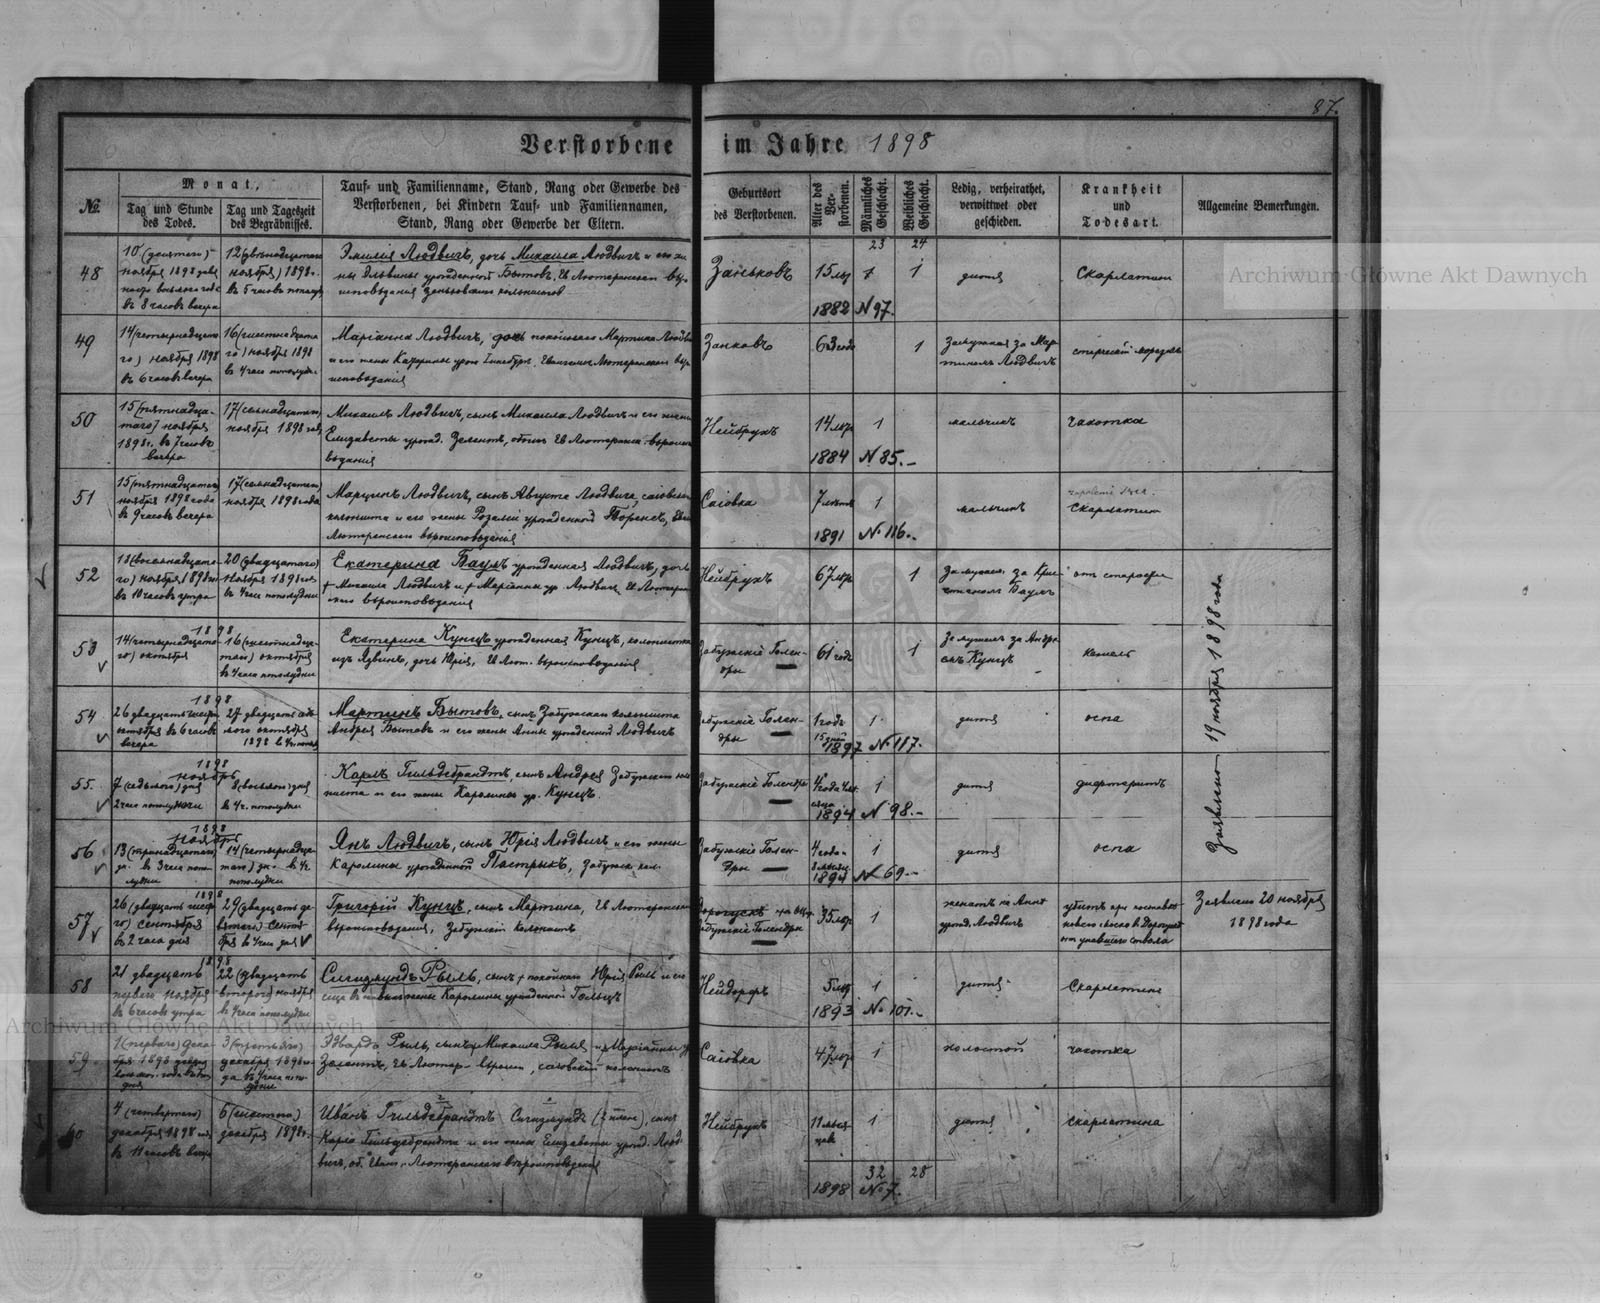 87.
Verstorbene im Jahre 1898
№
Monat,
Tag und Stunde des Todes.
Tag und Tageszeit des Begräbnisses.
Tauf- und Familienname, Stand, Rang oder Gewerbe des
Verstorbenen, bei Kindern Tauf- und Familiennamen,
Stand, Rang oder Gewerbe der Eltern.
Geburtsort
des Verstorbenen.
Alter des Ver-
storbenen.
Männliches
Geschlecht.
Weibliches
Geschlecht.
Ledig, verheirathet,
verwittwet oder
geschieden.
Krankheit
und
Todesart.
Allgemeine Bemerkungen.
23 24
48
10 (десятаго)
ноября 1898 года
въ 8 часовъ вечера
12 (двѣнадцатаго
ноября) 1898 г.
въ 5 часовъ
Эмилія Людвигъ, дочь Михаила Людвигъ и его же-
ны урожденной Бытовъ, Ев. Лютеранскаго вѣро-
исповѣданія
Заньковъ
15 1
дитя
Скарлатина
1882 N 97.
49
14 (четырнадцата-
го) ноября 1898
въ 6 часовъ вечера
16 (шестнадцата
го) ноября 1898
въ 4 часа пополудни
Маріанна Людвигъ, дочь покойнаго Мартина Людвигъ
и его жены Евангелическо Лютеранскаго вѣро-
исповѣданія
Занковъ
63 года
1
Замужняя за Мар-
тиномъ Людвигъ
50
15 (пятнадца-
таго) ноября
1898 г. въ 7 часовъ
вечера
17 (семнадцатаго)
ноября 1898 года
Михаилъ Людвигъ, сынъ Михаила Людвигъ и его жены
Елизаветы урожд. Зелентъ, обоихъ Ев. Лютеранск. вѣроиспо-
вѣданія
Нейбрухъ
14 1
мальчикъ
чахотка
1884 N 85.-
51
15 (пятнадцатаго)
ноября 1898 года
въ 9 часовъ вечера
17 (семнадцатаго)
ноября 1898 года
Марцинъ Людвигъ, сынъ Августа Людвига,
колониста и его жены Розаліи урожденной
Лютеранскаго вѣроисповѣданія
Саіовка
7 1
мальчикъ
Скарлатин
1891 N 116.-
52
18 (восемнадцата-
го) ноября 1898 г.
въ 10 часовъ утра
20 (двадцатаго)
ноября 1898 г.
въ 4 часа пополудни
Екатерина Баумъ урожденная Людвигъ, дочь
† Михаила Людвигъ и † Маріанны ур. Людвигъ, Ев. Лютеран-
скаго вѣроисповѣданія
Нейбрухъ
67
1
Замужняя за
Баумъ
отъ старости
53
1898
14 (четырнадцата-
го) октября
16 (шестнадца-
таго) октября
въ 4 часа пополудни
Екатерина Кунцъ урожденная Кунцъ, колонистка
изъ дочь Юрія, Ев. Лют. вѣроисповѣданія
Забужскіе Голен-
дры
61 годъ
1
Замужемъ за
Кунцъ
кашель
54
1898
26 двадцать шест.
октября въ 6 часовъ
вечера
27 двадцать седь-
мого октября
1898 въ 4 ч. попол.
Мартинъ Бытовъ, сынъ Забужскаго колониста
Андрея Бытовъ и его жены Анны урожденной Людвигъ
Забужскіе Голен-
дры
1 годъ
15 дней
1
дитя
оспа
1897 N 117.
55.
1898
ноябрь
7 (седьмого) дня
2 часа пополуночи
8 (восьмого) дня
въ 4 ч. пополудни
Карлъ Гильдебрандтъ, сынъ Андрея Забужскаго коло-
ниста и его жены Каролины ур. Кунцъ.
Забужскіе Голендры
4 года
1
дитя
дифтеритъ
1894 N 98.-
56
1898
Ноябрь
13 (тринадцатаго)
въ 3 часа попо-
лудни
14 (четырнадца-
таго) въ 4 ч.
пополудни
Янъ Людвигъ, сынъ Юрія Людвигъ и его жены
Каролины урожденной Пастрыкъ, Забужск. кол.
Забужскіе Голен-
дры
4 года
1
дитя
оспа
1894 N 69.-
Заявлено 19 ноября 1898 года
57
1898
26 (двадцать шест
го) сентября
въ 2 часа дня
29 (двадцать де-
вятаго) сентя-
бря въ 4 часа дня
Григорій Кунцъ, сынъ Мартина, Ев. Лютеранскаго
вѣроисповѣданія, Забужскій колонистъ
Дорогускъ
Забужскіе Голендры
35
1
женатъ на Аннѣ
урожд. Людвигъ
убитъ при
Заявлено 20 ноября
1898 года
58
1898
21 двадцать
перваго ноября
въ 6 часовъ утра
22 (двадцать
второго) ноября
въ 4 часа пополудни
Сигизмундъ Рыль, сынъ † покойнаго Юрія Рыль и его
жены Каролины урожденной Гольцъ
Нейдорфъ
5 1
дитя
Скарлатина
1893 N 101.-
59
1 (перваго) дека-
бря 1898
3 (третьяго)
декабря 1898
Эдвардъ Рыль, сынъ † Михаила Рыля и † Маріанны ур.
Зелентъ, Ев. Лютер. вѣроисп., саіовскій колонистъ
Саіовка
47 1
холостой
чахотка
60
4 (четвертаго)
декабря 1898
въ 11 часовъ
6 (шестого)
декабря 1898 г.
Иванъ Гильдебрандтъ Сигизмундъ (2 имен), сынъ
Карла Гильдебрандта и его жены Елизаветы урожд. Люд-
вигъ, об. Еванг. Лютеранскаго вѣроисповѣданія
Нейбрухъ
11 меся-
цевъ
1
дитя
скарлатина
32 28
1898 N 7.
Archiwum Główne Akt Dawnych
Archiwum Główne Akt Dawnych